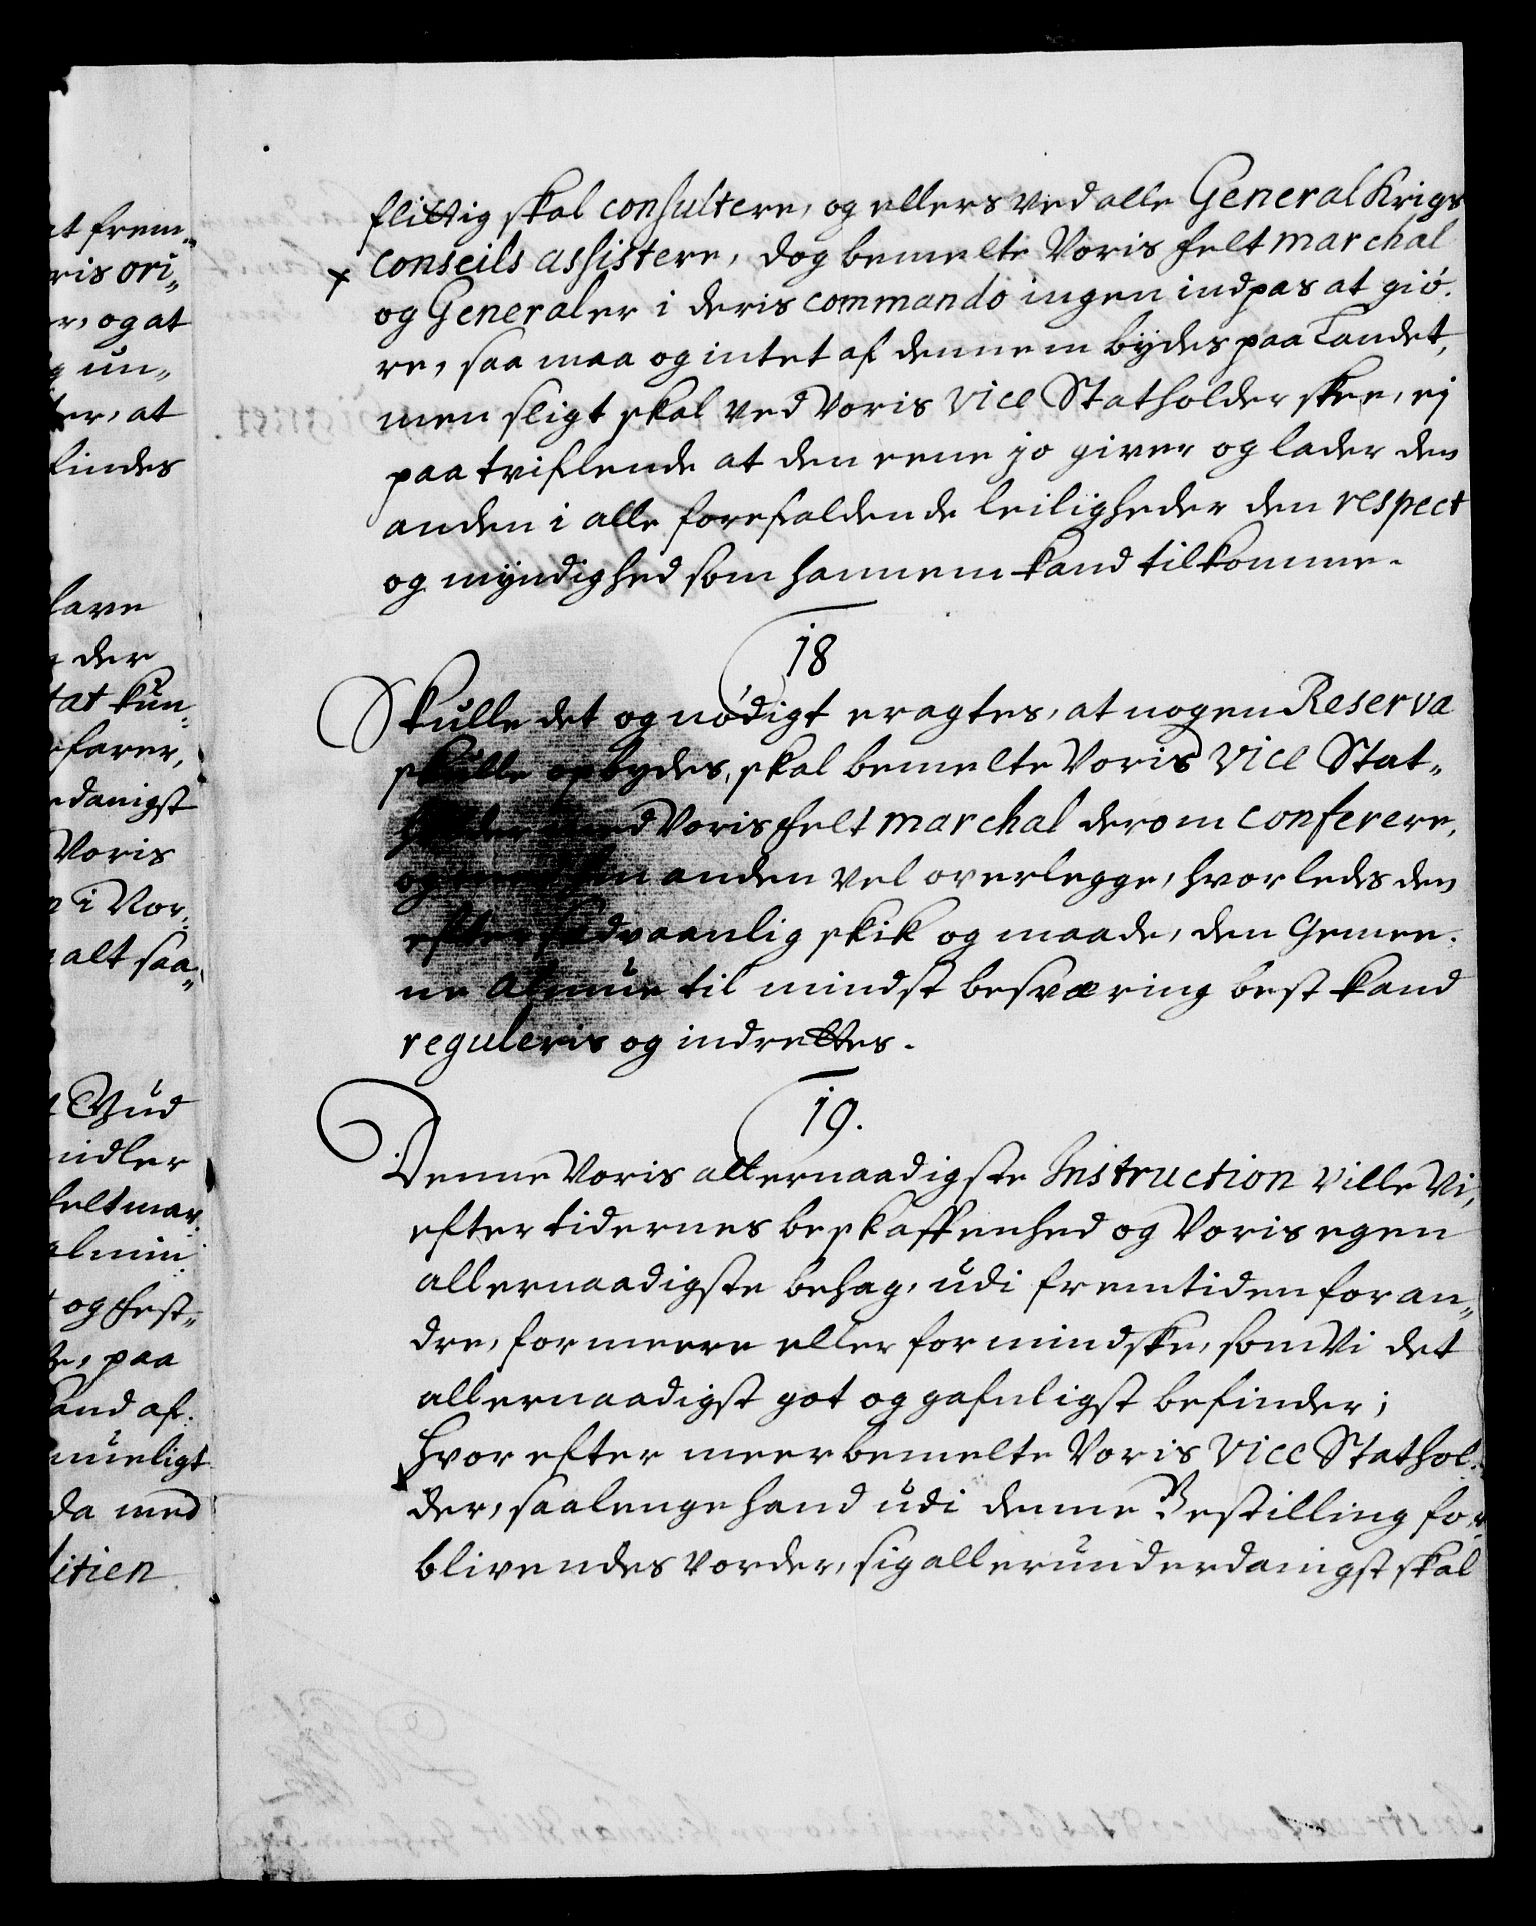 at frem„
ris ori„
r, og at
g un„
ter, at
findes
have
der
tat kun„
farer,
danigst
Voris
i Nor„
alt saa„
Bud
indler
feltmar„
almin„
og Fest„
paa
and af„
mueligt
da med
litien
flittig skal consultere, og ellers ved alle General Krigs
x conseils assistere, dog bemelte Voris Felt marchal
og Generaler i deris commando ingen indpas at giö„
re, saa maa og intet af dennem bydes paa Landet,
men sligt skal ved Voris Vice Statholder skee, ej
paa tviflende at den eene jo giver og lader den
anden i alle forefaldende leiligheder den respect
og myndighed som hannem kand tilkomme.
18
Skulle det og nödigt eragtes, at nogen Reserva
skulle opbydes, skal bemelte Voris Vice Stat„
holder med Voris Felt marchal derom conferere,
og med hin anden vel overlegge, hvorledes den
efter sædvaanlig skik og maade, den Gemee„
ne Almue til mindst besværing best kand
reguleris og indrettes.
19.
Denne Voris allernaadigste Instruction Ville Vi,
efter tidernes beskaffenhed og Voris egen
allernaadigste behag, udi fremtiden foran„
dre, formeere eller formindske, som Vi det
allernaadigst got og gafnligst befinder;
Hvorefter meerbemelte Voris Vice Stathol„
der, saalenge hand udi denne Bestilling for„
blivendes vorder, sig allerunderdanigst skal